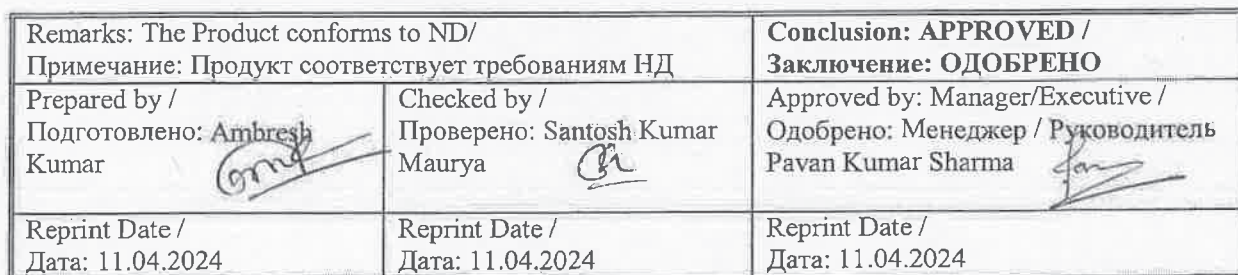 Remarks: The Product conforms to ND/
Примечание: Продукт соответствует требованиям НД
Conclusion: APPROVED /
Заключение: ОДОБРЕНО
Prepared by /
Подготовлено: Ambresh
Kumar
Checked by /
Проверено: Santosh Kumar
Maurya
Approved by: Manager/Executive /
Одобрено: Менеджер / Руководитель
Pavan Kumar Sharma
Reprint Date /
Дата: 11.04.2024
Reprint Date /
Дата: 11.04.2024
Reprint Date /
Дата: 11.04.2024